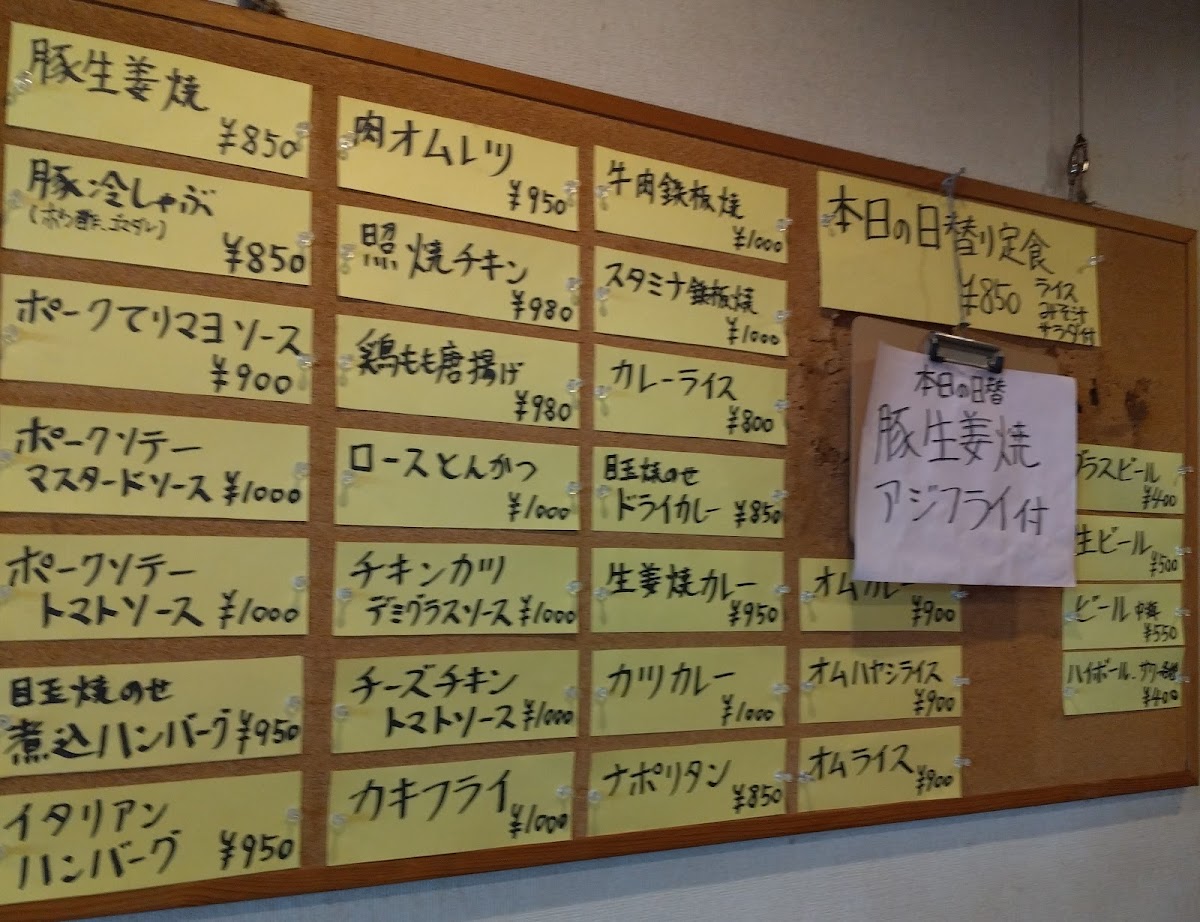 豚生姜焼
¥850
豚冷しゃぶ
(ポン酢、ゴマダレ)
¥850
ポークてりマヨソース
¥900
ポークソテー
マスタードソース ¥1000
ポークソテー
トマトソース ¥1000
目玉焼のせ
煮込ハンバーグ ¥950
イタリアン
ハンバーグ ¥950
肉オムレツ
¥950
照焼チキン
¥980
鶏もも唐揚げ
¥980
ロースとんかつ
¥1000
チキンカツ
デミグラスソース ¥1000
チーズチキン
トマトソース ¥1000
カキフライ
¥1000
牛肉鉄板焼
¥1000
スタミナ鉄板焼
¥1000
カレーライス
¥800
目玉焼のせ
ドライカレー ¥850
生姜焼カレー
¥950
カツカレー
¥1000
ナポリタン
¥850
本日の日替り定食
¥850
ライス
みそ汁
サラダ付
本日の日替
豚生姜焼
アジフライ付
オムカレー
¥900
オムハヤシライス
¥900
オムライス
¥900
グラスビール
¥400
生ビール
¥500
ビール 中瓶
¥550
ハイボール
¥400